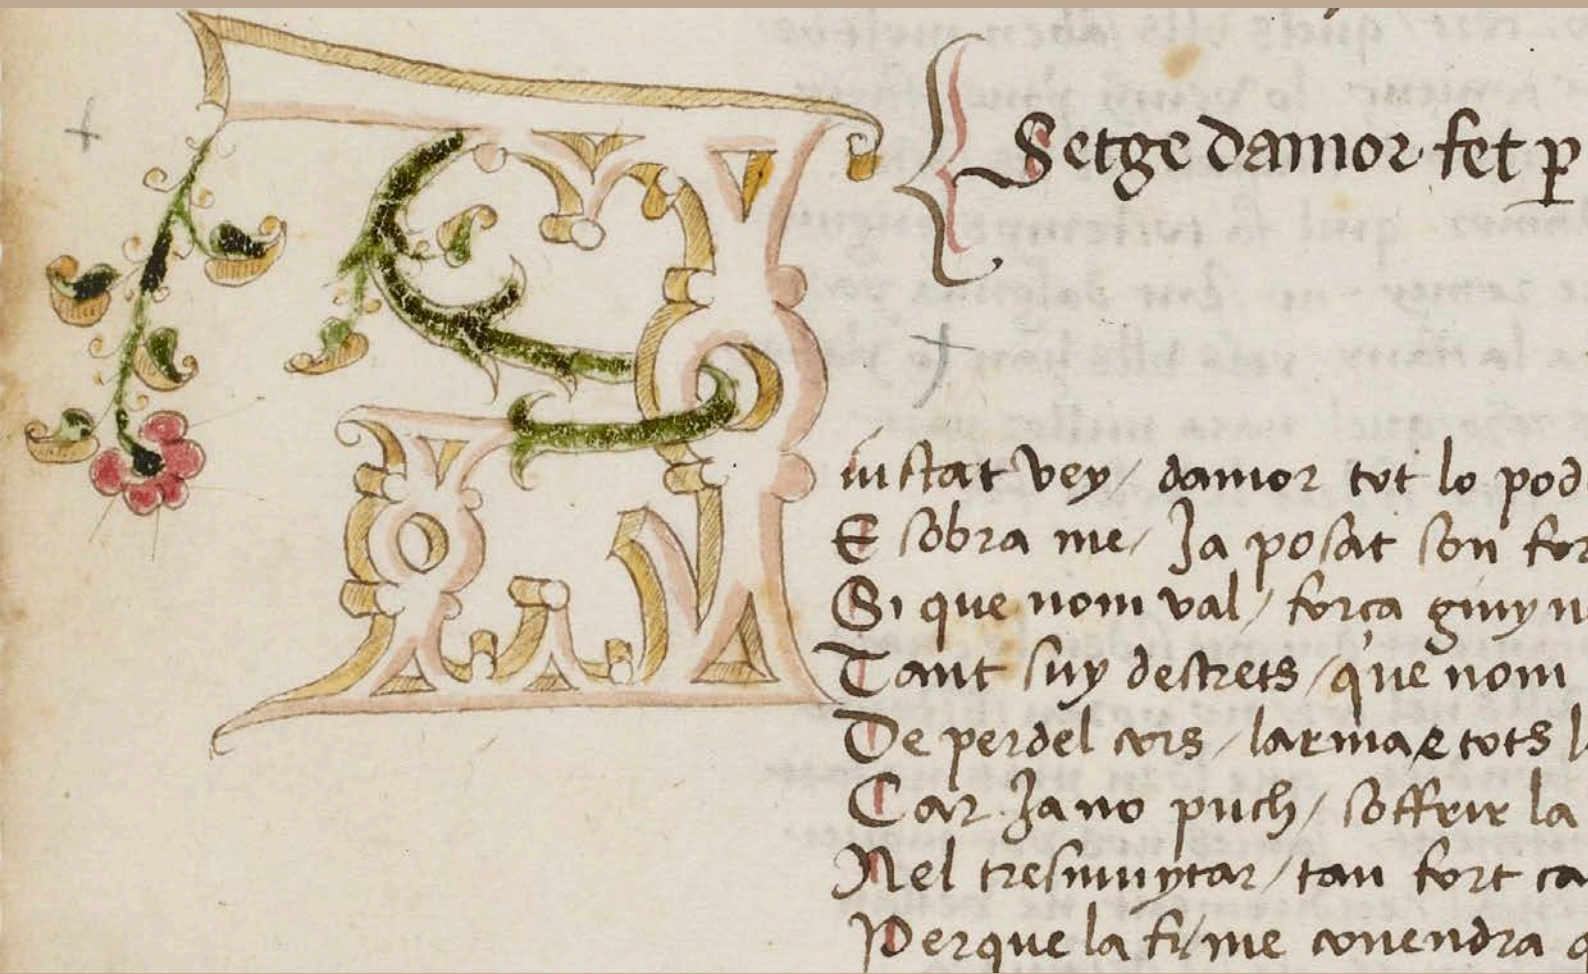 Setge damor fet p̲
A iustat vey / damor tot lo pod
E sobra me / Ja posat son for
Si que nom val / força giny n
Tant suy destrets / que nom
De perdel cors / larma e tots l
Car Ja no puch / soffrir la
Nel tresmuytar / tan fort ca
Perque la fi / me convendra q